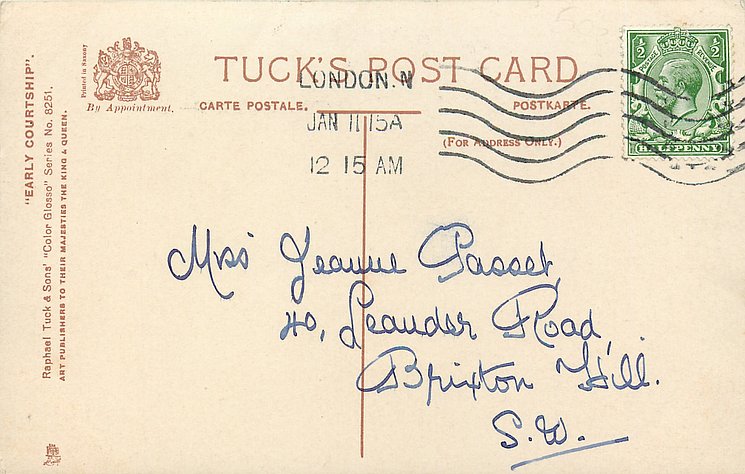 "EARLY COURTSHIP".
Raphael Tuck & Sons' "Color Glosso" Series No. 8251.
ART PUBLISHERS TO THEIR MAJESTIES THE KING & QUEEN.
Printed in Saxony
By Appointment.
TUCK'S POST CARD
CARTE POSTALE.
POSTKARTE.
(FOR ADDRESS ONLY.)
LONDON. N
JAN 11 15A
12 15 AM
1/2
1/2
POSTAGE
REVENUE
HALFPENNY
Miss Jeanne Passet,
40, Leander Road,
Brixton Hill.
S.W.